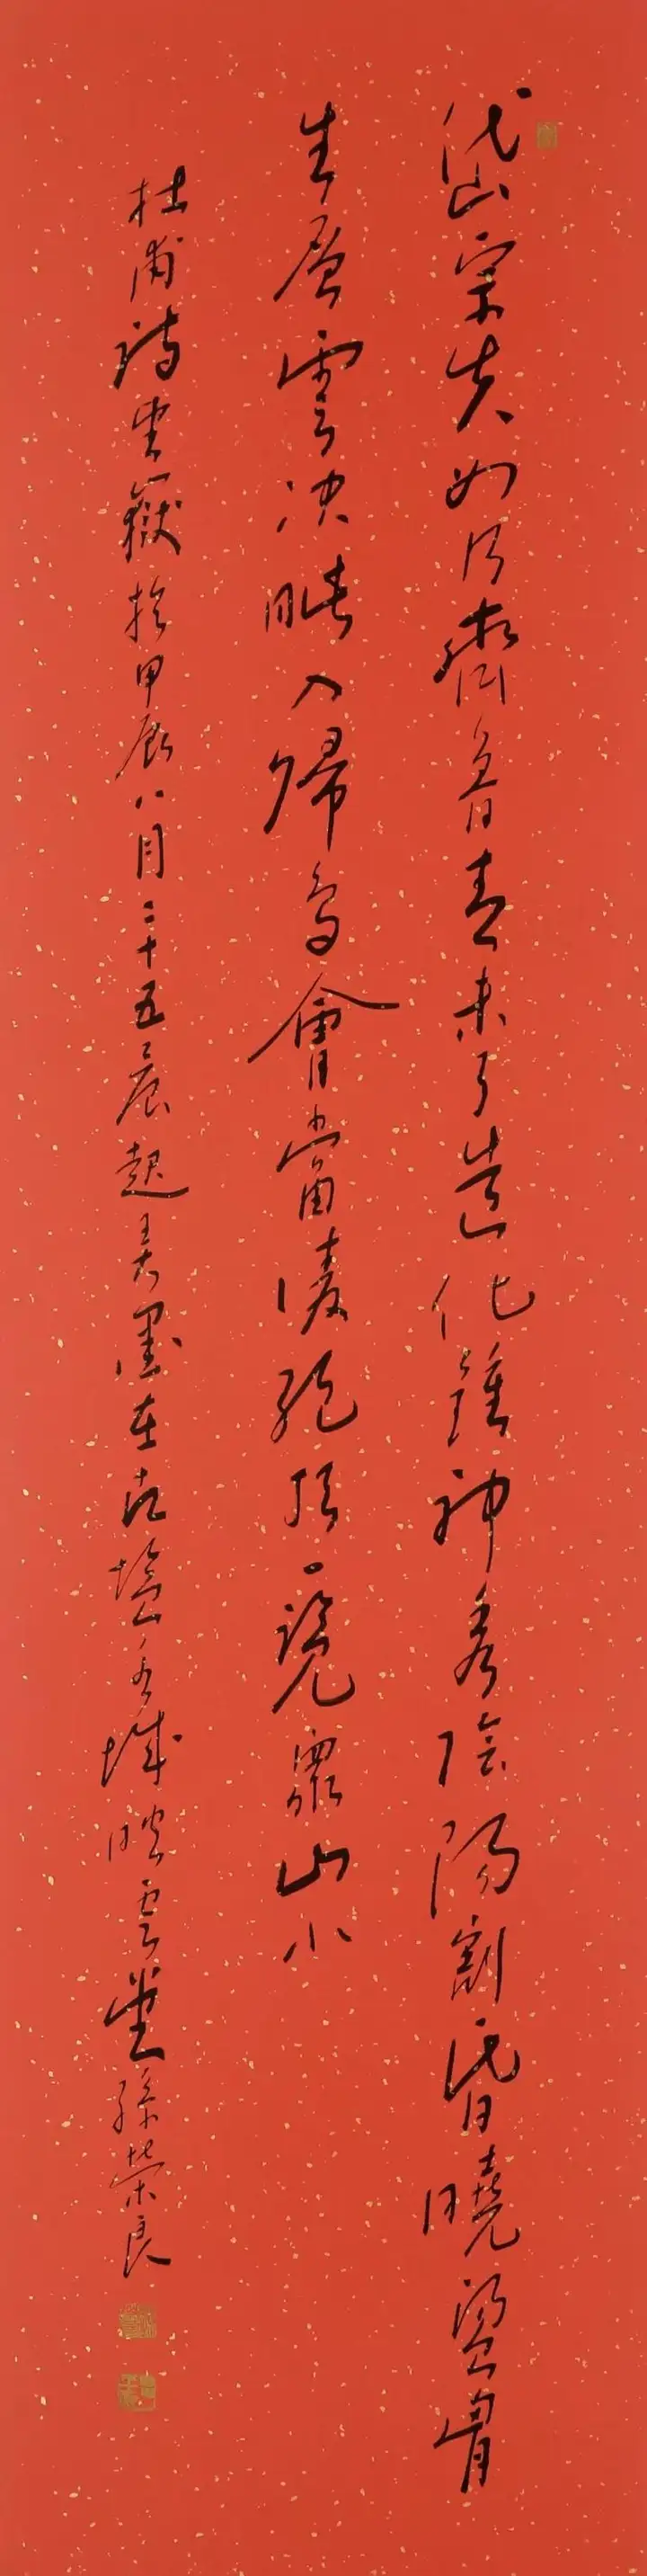 岱宗夫如何齊魯青未了造化鍾神秀陰陽割昏曉盪胷
生層雲決眦入歸鳥會當凌絕頂一覽眾山小
杜甫詩望嶽於甲辰八月二十五晨起弄墨在古塩城映雲堂孫榮良